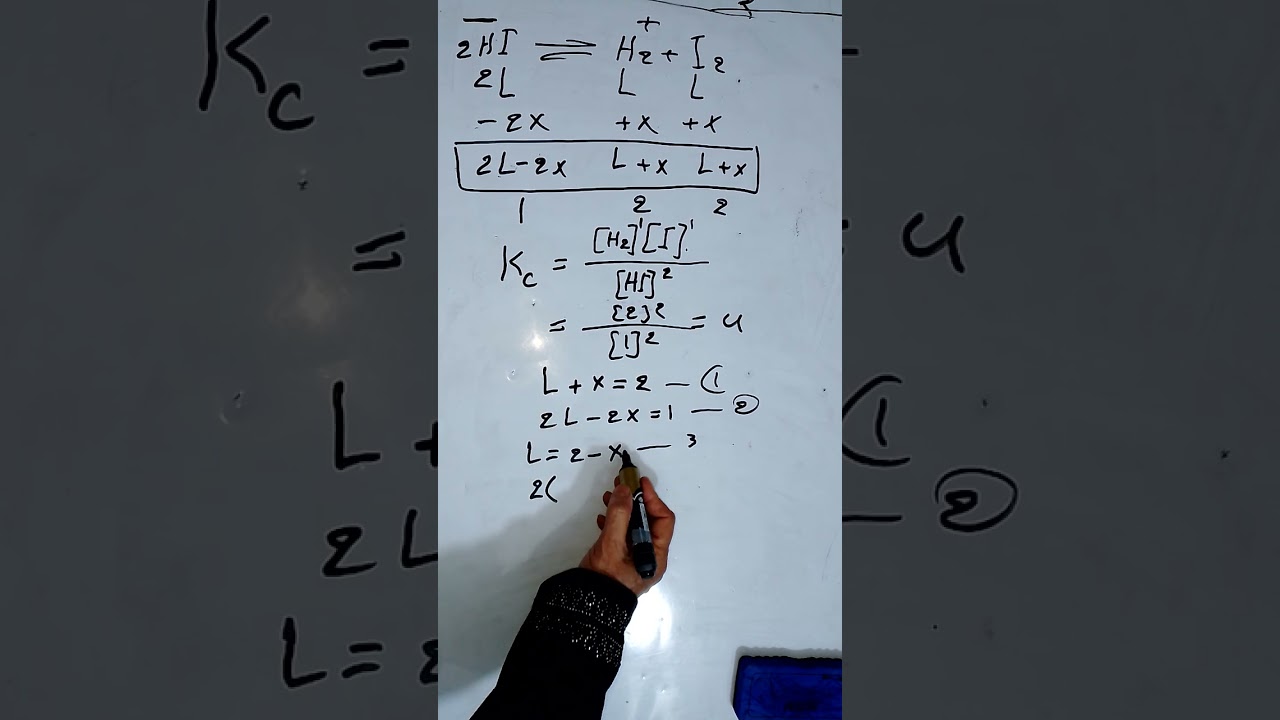 2HI ⇌ H2 + I2
2L L L
-2x +x +x
2L-2x L+x L+x
1 2 2
Kc = [H2]¹[I]¹ / [HI]²
= [2]² / [1]² = 4
L + x = 2 — ①
2L - 2x = 1 — ②
L = 2 - x — 3
2(